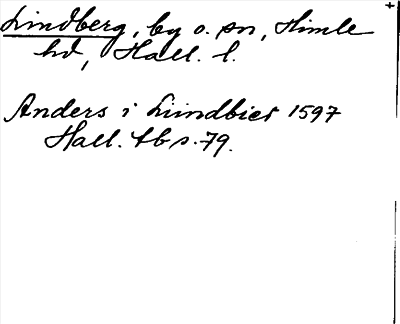 Lindberg, by o. sn, Himle
hd, Hall. l.
Anders i Lundbier 1597
Hall. tb s. 79.